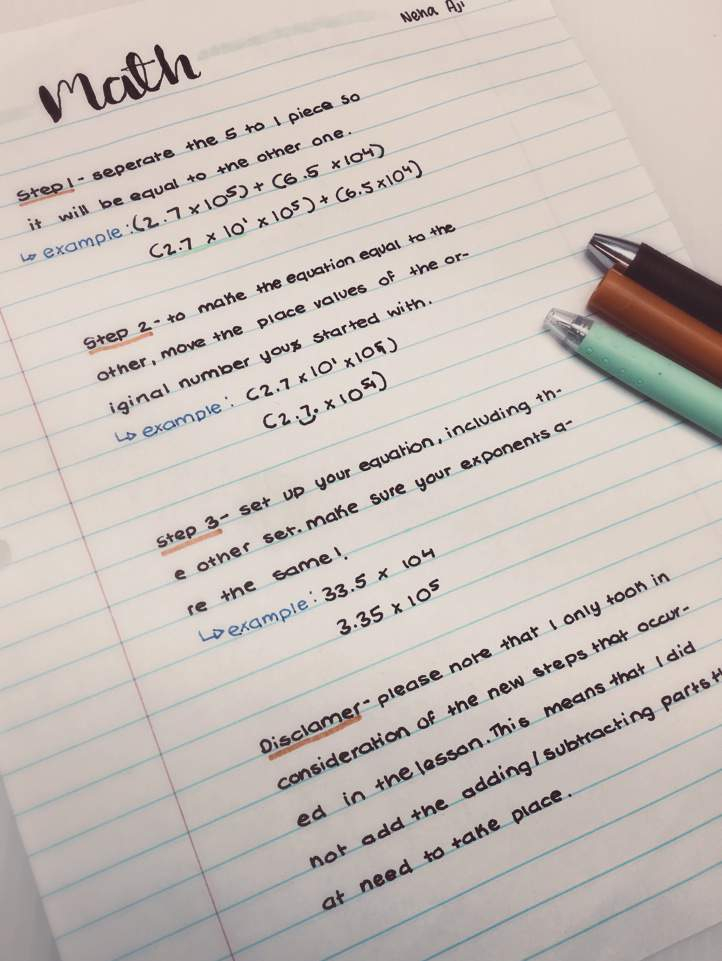 Neha Aji
Math
Step 1 - seperate the 5 to 1 piece so
it will be equal to the other one.
↳ example: (2.7 × 10⁵) + (6.5 × 10⁴)
(2.7 × 10¹ × 10⁵) + (6.5 × 10⁴)
Step 2 - to make the equation equal to the
other, move the place values of the or-
iginal number you started with.
↳ example: (2.7 × 10¹ × 10⁵)
(2.7. × 10⁴)
step 3 - set up your equation, including th-
e other set. make sure your exponents a-
re the same!
↳ example: 33.5 × 10⁴
3.35 × 10⁵
Disclamer - please note that I only took in
consideration of the new steps that occur-
ed in the lesson. This means that I did
not add the adding/subtracting parts th
at need to take place.